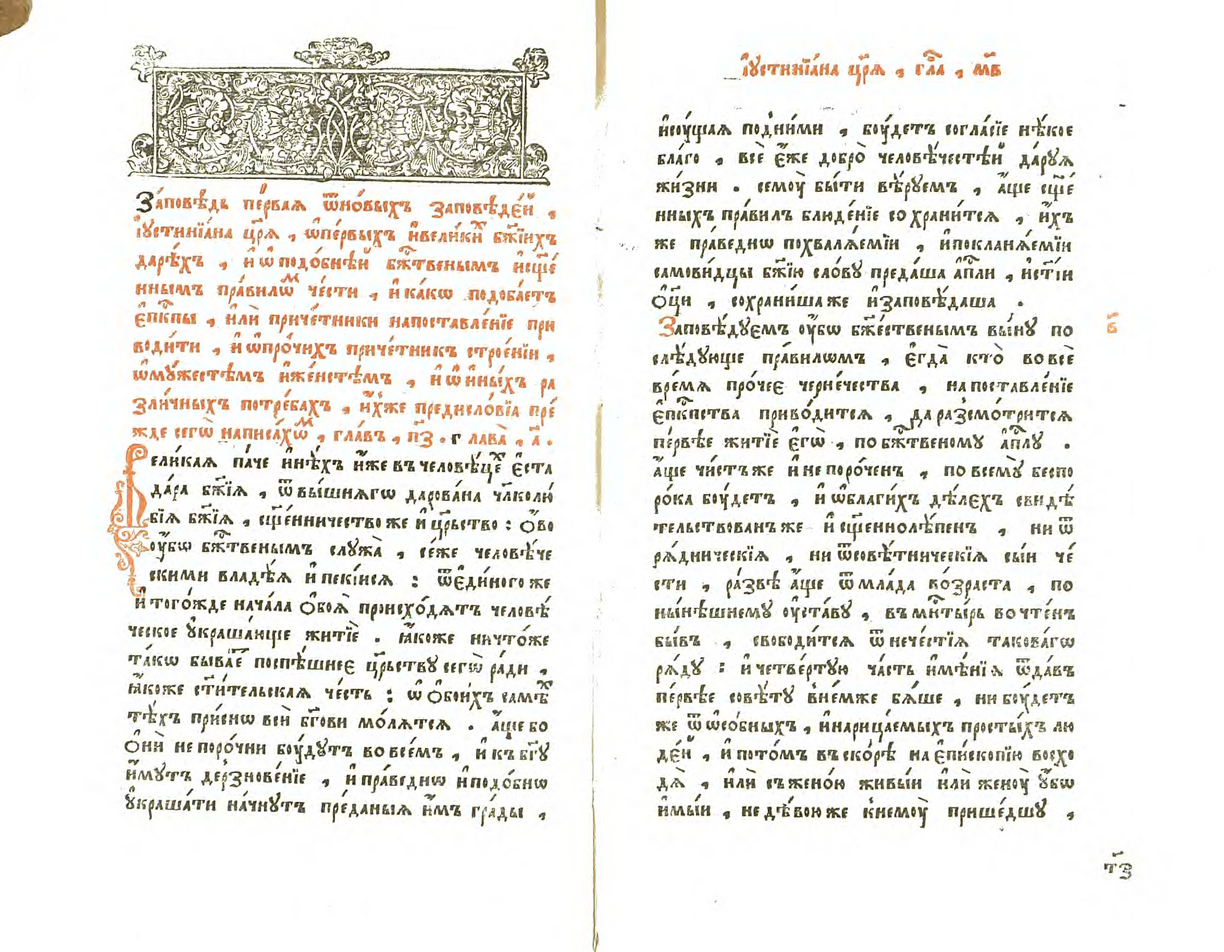 За́повѣдь пе́рваѧ ѿно́выхъ за́повѣдеи҆ ,
і҆ꙋстинїа́на цр҃ѧ̀ , ѡ҆пе́рвыхъ и҆вели́ки бж҃їихъ
даре́хъ , и҆ ѡ҆ подо́бнѣи бж҃твенымъ и҆сщ҃е
ннымъ пра́вилѡⷨ че́сти , и҆ ка́кѡ подоба́етъ
є҆пⷭ҇кпы , и҆лѝ приче́тники напоставле́нїе при
води́ти , и҆ ѡ҆про́чихъ приче́тникъ строе́нїи ,
ѡ҆мꙋ́жестѣмъ и҆же́нстѣмъ , и҆ ѡ҆ и҆ны́хъ ра
зли́чныхъ потре́бахъ , и҆́хже предисло́вїа пре́
жде сегѡ̀ написа́хѡⷨ , гла́въ , п҃з . глава̀ , а҃ .
Вели́каѧ па́че и҆нѣ́хъ и҆́же въ человѣ́цеⷯ є҆ста̀
да́ра бж҃їѧ , ѿ вы́шнѧгѡ дарова́на чл҃колю́
бїѧ бж҃їѧ , сщ҃е́нничество же и҆ цр҃ьство : Ѻ҆́во
ᲂу҆́бѡ бж҃твенымъ слꙋжа̀ , се́же человѣ́че
скими владѣ́ѧ и҆ пекі́йсѧ : ѿ є҆ди́ного же
и҆ того́жде нача́ла ѻ҆боѧ̀ происхо́дѧтъ человѣ́
ческое ᲂу҆краша́юще житїѐ . ꙗ҆́коже ничто́же
та́кѡ быва́еⷮ поспѣ́шнее цр҃ьствꙋ сегѡ̀ ра́ди ,
ꙗ҆́коже ст҃и́тельскаѧ че́сть : ѡ҆ ѻ҆бои́хъ самѣⷯ
тѣ́хъ при́снѡ всѝ бг҃ови мо́лѧтсѧ . а҆́ще бо
Ѻ҆нѝ не поро́чни бꙋ́дꙋтъ во все́мъ , и҆ къ бг҃ꙋ
и҆́мꙋтъ дерзнове́нїе , и҆ пра́веднѡ и҆ подо́бнѡ
ᲂу҆краша́ти на́чнꙋтъ пре́даныѧ и҆̀мъ гра́ды ,
І҆ꙋстинїа́на цр҃ѧ̀ , гла҃ , м҃в
и҆сꙋ́щаѧ под̾ни́ми , бꙋ́детъ согла́сїе нѣ́кое
бла́го , всѐ є҆́же добро̀ человѣ́честѣй да́рꙋѧ
жи́зни . семꙋ̀ бы́ти вѣ́рꙋемъ , а҆́ще сщ҃е́
нныхъ пра́вилъ блюде́нїе сохрани́тсѧ , и҆́хъ
же пра́веднѡ похвалѧ́емїи , и҆покланѧ́емїи
самови́дцы бж҃їю сло́вꙋ преда́ша а҆пⷭ҇ли , и҆ ст҃і́и
ѻ҆ц҃ы , сохрани́ша же и҆ запо́вѣдаша .
Заповѣ́дꙋемъ ᲂу҆́бѡ бж҃е́ственымъ вы́нꙋ по
слѣ́дꙋюще пра́вилѡмъ , є҆гда̀ кто̀ во всѐ
вре́мѧ про́чее черне́чества , на поставле́нїе
є҆пⷭ҇кпства приво́дитсѧ , да разсмо́тритсѧ
пе́рвѣе житїѐ є҆гѡ̀ , по бж҃твеному а҆пⷭ҇лꙋ .
а҆́ще чи́стъ же и҆ не поро́ченъ , по всемꙋ̀ беспо
ро́ка бꙋ́детъ , и҆ ѡ҆ благи́хъ дѣ́лехъ свидѣ́
тельствованъ же и҆ сщ҃еннолѣ́пенъ , ни ѿ
рѧ́дническїѧ , ни ѿ совѣ́тническїѧ сы́и че́
сти , ра́звѣ а҆́ще ѿ мла́да во́зраста , по
ны́нѣшнемꙋ ᲂу҆ста́вꙋ , въ мн҃тырь во чте́нъ
бы́въ , свободи́тсѧ ѿ нече́стїѧ такова́гѡ
рѧ́дꙋ : и҆ четве́ртꙋю ча́сть и҆мѣ́нїѧ ѿда́въ
пе́рвѣе совѣ́тꙋ в̾не́мже бѧ́ше , ни бꙋ́детъ
же ѿ ѡ҆со́бныхъ , и҆нарица́емыхъ просты́хъ лю
де́й , и҆ пото́мъ въ ско́рѣ на є҆писко́пїю восхо
дѧ̀ , и҆лѝ съ жено́ю живы́и и҆лѝ женꙋ̀ ᲂу҆́бѡ
и҆мы́и , не дѣ́вою же к̾немꙋ̀ прише́дшꙋ ,
в҃
т҃з